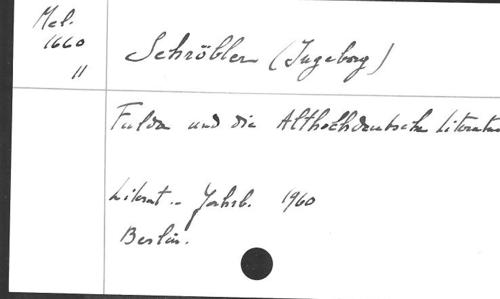 Mel.
1660
11
Schröbler (Ingeborg)
Fulda und die Althochdeutsche Literatur
Literat.. Jahrb. 1960
Berlin.